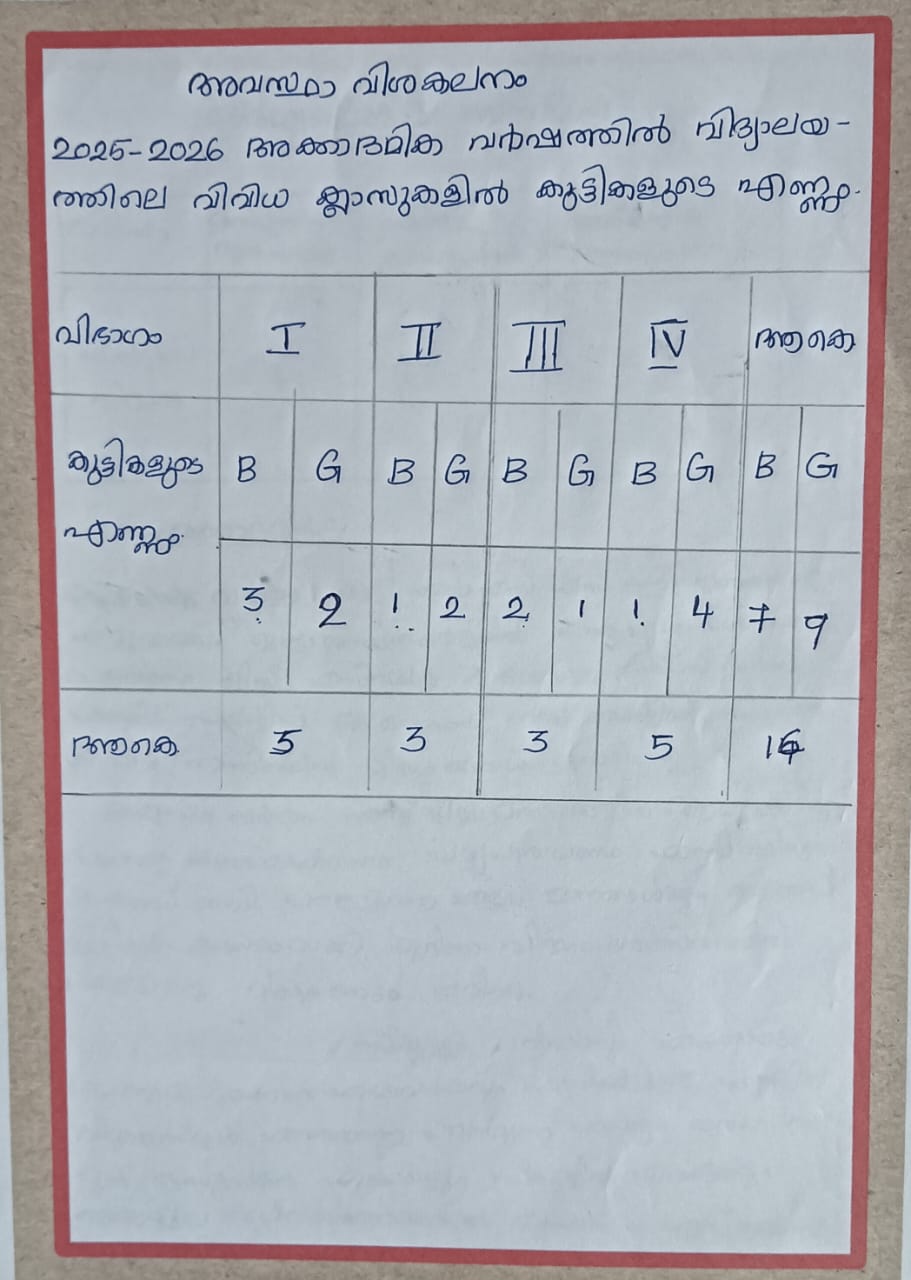 അവസ്ഥാ വിശകലനം
2025-2026 അക്കാദമിക വർഷത്തിൽ വിദ്യാലയ-
ത്തിലെ വിവിധ ക്ലാസുകളിൽ കുട്ടികളുടെ എണ്ണം.
വിഭാഗം I II III IV ആകെ
കുട്ടികളുടെ B G B G B G B G B G
എണ്ണം
3 2 1 2 2 1 1 4 7 9
ആകെ 5 3 3 5 16